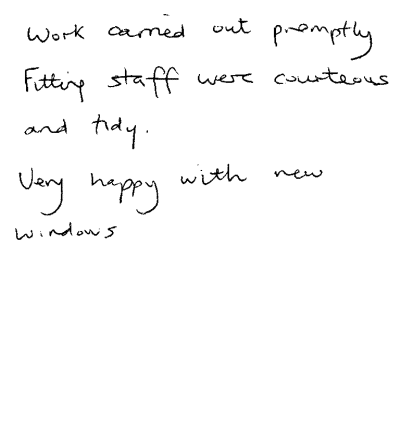 Work carried out promptly
Fitting staff were courteous
and tidy.
Very happy with new
windows